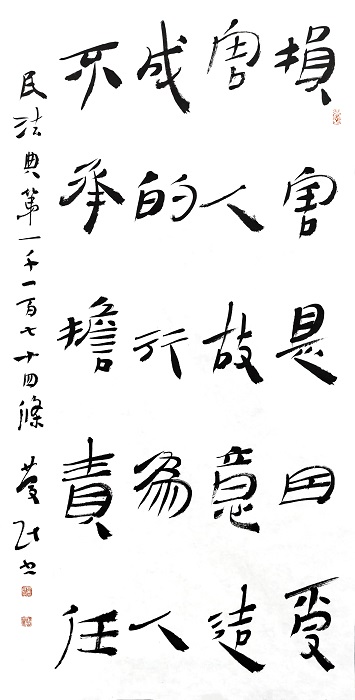 損害是因受
害人故意造
成的行為人
不承擔責任
民法典第一千一百七十四條 书